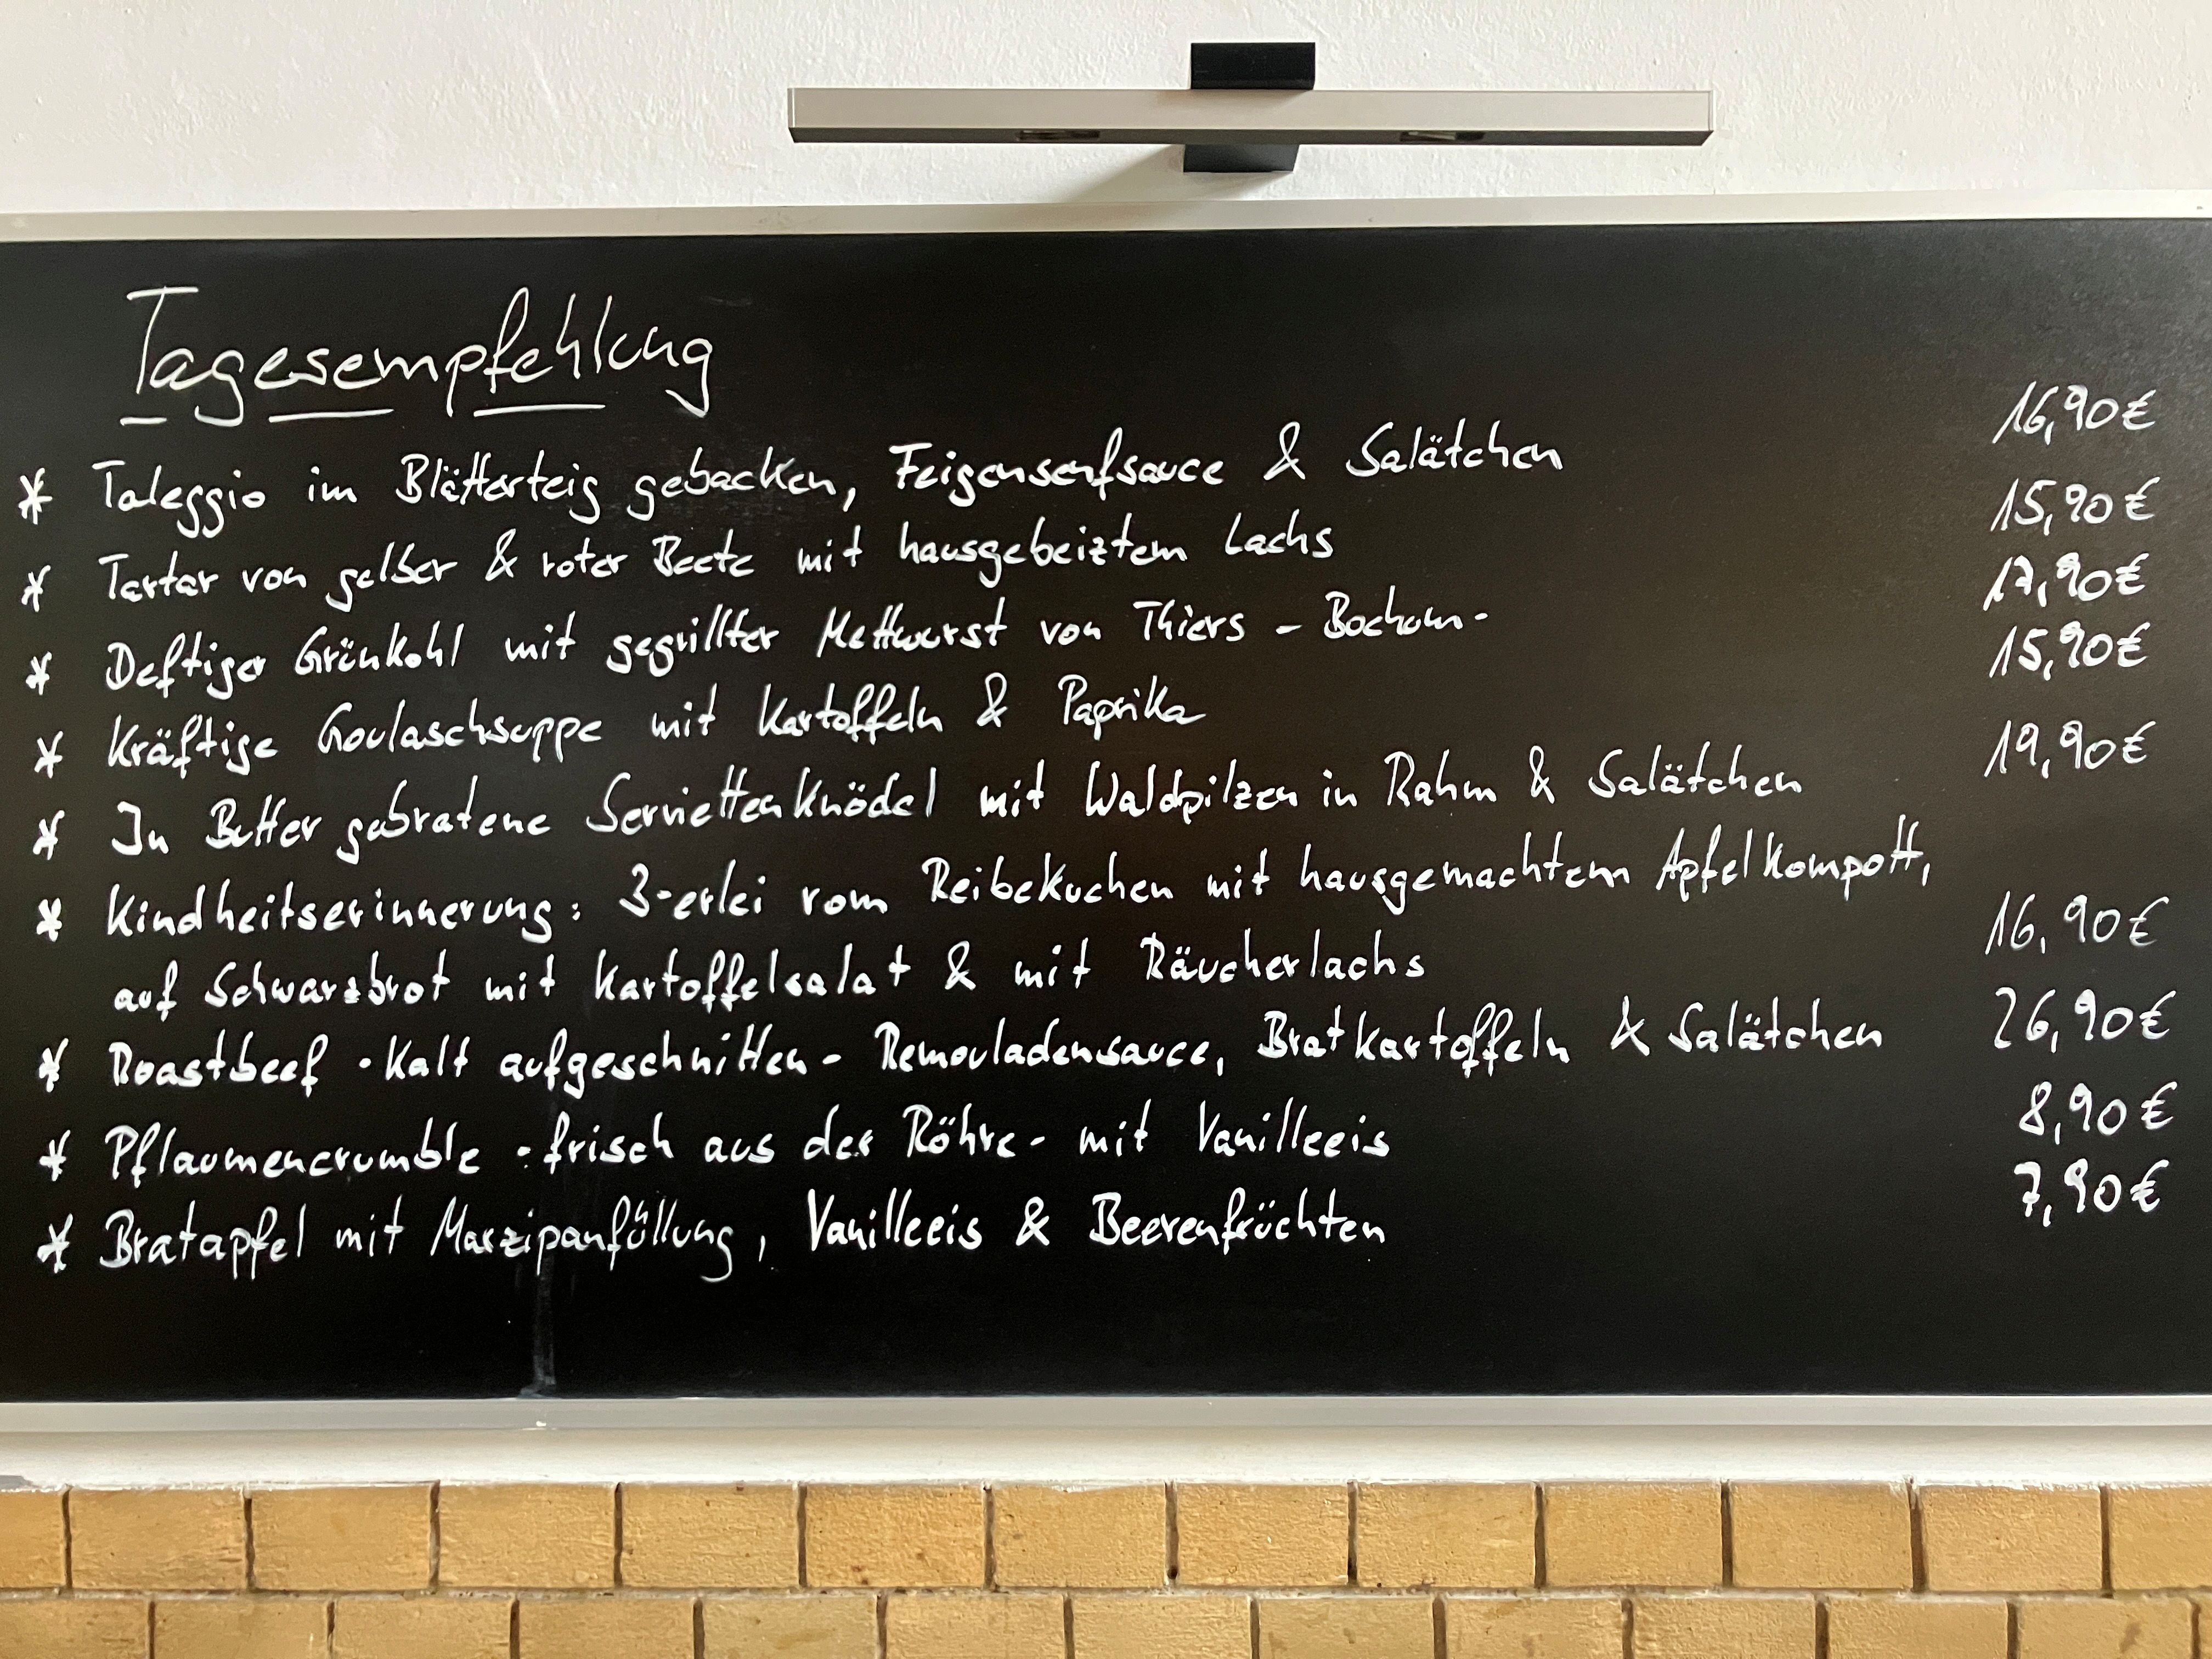 Tagesempfehlung
* Taleggio im Blätterteig gebacken, Feigensenfsauce & Salätchen 16,90€
* Tartar von gelber & roter Beete mit hausgebeiztem Lachs 15,90€
* Deftiger Grünkohl mit gegrillter Mettwurst von Thiers - Bochum - 17,90€
* Kräftige Goulaschsuppe mit Kartoffeln & Paprika 15,90€
* In Butter gebratene Serviettenknödel mit Waldpilzen in Rahm & Salätchen 19,90€
* Kindheitserinnerung: 3-erlei vom Reibekuchen mit hausgemachtem Apfelkompott,
auf Schwarzbrot mit Kartoffelsalat & mit Räucherlachs 16,90€
* Roastbeef - kalt aufgeschnitten - Remouladensauce, Bratkartoffeln & Salätchen 26,90€
* Pflaumencrumble - frisch aus der Röhre - mit Vanilleeis 8,90€
* Bratapfel mit Marzipanfüllung, Vanilleeis & Beerenfrüchten 7,90€